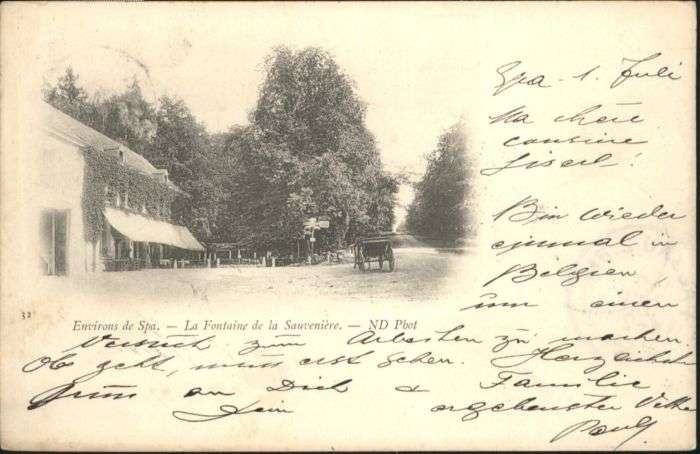 Spa 1. Juli
Ma chère
cousine
Liserl!
Bin wieder
einmal in
Belgien,
um einen
32
Environs de Spa. — La Fontaine de la Sauvenière. — ND Phot
Versuch zum Arbeiten zu machen.
Ob geht, muss erst sehen. Herzlichste
Gruss an Dich & Familie
Dein ergebenster Vetter